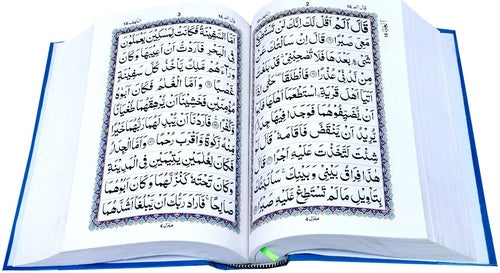 قال الم ١٦
2
قَالَ اَلَمْ اَقُلْ لَّكَ اِنَّكَ لَنْ تَسْتَطِيْعَ
مَعِيَ صَبْرًا ۝ قَالَ اِنْ سَاَلْتُكَ عَنْ
شَيْءٍۭ بَعْدَهَا فَلَا تُصٰحِبْنِيْ ۚ قَدْ بَلَغْتَ
مِنْ لَّدُنِّيْ عُذْرًا ۝ فَانْطَلَقَا حَتّٰۤى اِذَاۤ
اَتَيَاۤ اَهْلَ قَرْيَةِ اِسْتَطْعَمَاۤ اَهْلَهَا فَاَبَوْا
اَنْ يُّضَيِّفُوْهُمَا فَوَجَدَا فِيْهَا جِدَارًا
يُّرِيْدُ اَنْ يَّنْقَضَّ فَاَقَامَهٗ ؕ قَالَ لَوْ
شِئْتَ لَتَّخَذْتَ عَلَيْهِ اَجْرًا ۝ قَالَ هٰذَا
فِرَاقُ بَيْنِيْ وَبَيْنِكَ ۚ سَاُنَبِّئُكَ
بِتَاْوِيْلِ مَا لَمْ تَسْتَطِعْ عَّلَيْهِ صَبْرًا ۝
منزل ٤
قال الم ١٦
3
الكهف ١٨
اَمَّا السَّفِيْنَةُ فَكَانَتْ لِمَسٰكِيْنَ يَعْمَلُوْنَ
فِي الْبَحْرِ فَاَرَدْتُّ اَنْ اَعِيْبَهَا وَكَانَ
وَرَآءَهُمْ مَّلِكٌ يَّاْخُذُ كُلَّ سَفِيْنَةٍ
غَصْبًا ۝ وَاَمَّا الْغُلٰمُ فَكَانَ اَبَوٰهُ
مُؤْمِنَيْنِ فَخَشِيْنَاۤ اَنْ يُّرْهِقَهُمَا طُغْيَانًا
وَّكُفْرًا ۝ فَاَرَدْنَاۤ اَنْ يُّبْدِلَهُمَا رَبُّهُمَا خَيْرًا
مِّنْهُ زَكٰوةً وَّاَقْرَبَ رُحْمًا ۝ وَاَمَّا الْجِدَارُ
فَكَانَ لِغُلٰمَيْنِ يَتِيْمَيْنِ فِي الْمَدِيْنَةِ
وَكَانَ تَحْتَهٗ كَنْزٌ لَّهُمَا وَكَانَ اَبُوْهُمَا
صَالِحًا ۚ فَاَرَادَ رَبُّكَ اَنْ يَّبْلُغَاۤ اَشُدَّهُمَا
منزل ٤